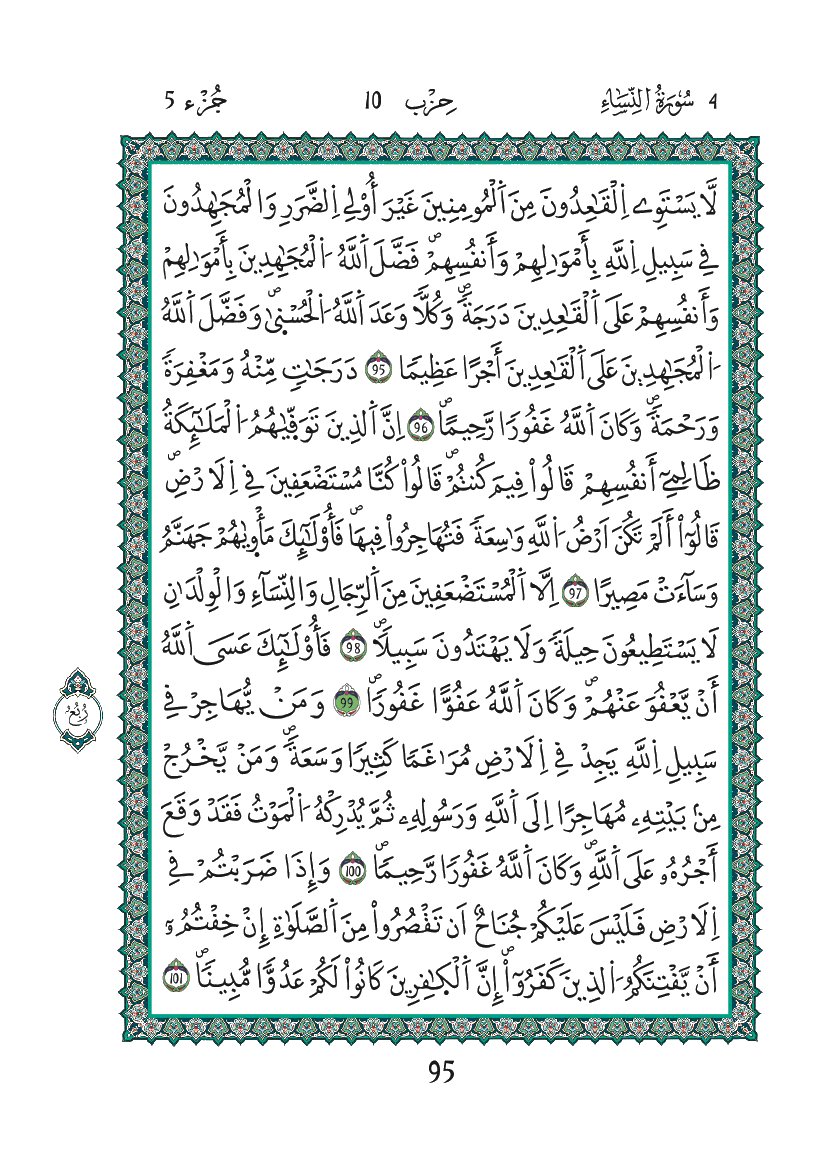 4 سُورَةُ النِّسَاءِ حِزْب 10 جُزْء 5
لَّا يَسْتَوِے اِ۬لْقَٰعِدُونَ مِنَ اَ۬لْمُومِنِينَ غَيْرَ أُوْلِے اِ۬لضَّرَرِ وَالْمُجَٰهِدُونَ
فِے سَبِيلِ اِ۬للَّهِ بِأَمْوَٰلِهِمْ وَأَنفُسِهِمْۖ فَضَّلَ اَ۬للَّهُ اُ۬لْمُجَٰهِدِينَ بِأَمْوَٰلِهِمْ
وَأَنفُسِهِمْ عَلَى اَ۬لْقَٰعِدِينَ دَرَجَةٗۖ وَكُلّاٗ وَعَدَ اَ۬للَّهُ اُ۬لْحُسْنَيٰۖ وَفَضَّلَ اَ۬للَّهُ
اُ۬لْمُجَٰهِدِينَ عَلَى اَ۬لْقَٰعِدِينَ أَجْرًا عَظِيمٗا 95 دَرَجَٰتٖ مِّنْهُ وَمَغْفِرَةٗ
وَرَحْمَةٗۖ وَكَانَ اَ۬للَّهُ غَفُورٗا رَّحِيمًاۖ 96 اِنَّ اَ۬لذِينَ تَوَفَّيٰهُمُ اُ۬لْمَلَٰٓئِكَةُ
ظَالِمِےٓ أَنفُسِهِمْ قَالُواْ فِيمَ كُنتُمْۖ قَالُواْ كُنَّا مُسْتَضْعَفِينَ فِے اِ۬لَارْضِۖ
قَالُوٓاْ أَلَمْ تَكُنَ اَرْضُ اُ۬للَّهِ وَٰسِعَةٗ فَتُهَاجِرُواْ فِيهَاۖ فَأُوْلَٰٓئِكَ مَأْوَيٰهُمْ جَهَنَّمُ
وَسَآءَتْ مَصِيرًا 97 اِلَّا اَ۬لْمُسْتَضْعَفِينَ مِنَ اَ۬لرِّجَالِ وَالنِّسَآءِ وَالْوِلْدَٰنِ
لَا يَسْتَطِيعُونَ حِيلَةٗ وَلَا يَهْتَدُونَ سَبِيلاٗۖ 98 فَأُوْلَٰٓئِكَ عَسَى اَ۬للَّهُ
أَنْ يَّعْفُوَ عَنْهُمْۖ وَكَانَ اَ۬للَّهُ عَفُوًّا غَفُورٗاۖ 99 وَمَنْ يُّهَاجِرْ فِے
سَبِيلِ اِ۬للَّهِ يَجِدْ فِے اِ۬لَارْضِ مُرَٰغَمٗا كَثِيرٗا وَسَعَةٗۖ وَمَنْ يَّخْرُجْ
مِنۢ بَيْتِهِۦ مُهَاجِرًا اِلَى اَ۬للَّهِ وَرَسُولِهِۦ ثُمَّ يُدْرِكْهُ اُ۬لْمَوْتُ فَقَدْ وَقَعَ
أَجْرُهُۥ عَلَى اَ۬للَّهِۖ وَكَانَ اَ۬للَّهُ غَفُورٗا رَّحِيمٗاۖ 100 وَإِذَا ضَرَبْتُمْ فِے
اِ۬لَارْضِ فَلَيْسَ عَلَيْكُمْ جُنَاحٌ اَن تَقْصُرُواْ مِنَ اَ۬لصَّلَوٰةِ إِنْ خِفْتُمُۥٓ
أَنْ يَّفْتِنَكُمُ اُ۬لذِينَ كَفَرُوٓاْۖ إِنَّ اَ۬لْكٰ۪فِرِينَ كَانُواْ لَكُمْ عَدُوّٗا مُّبِينٗاۖ 101
رُبُع
95